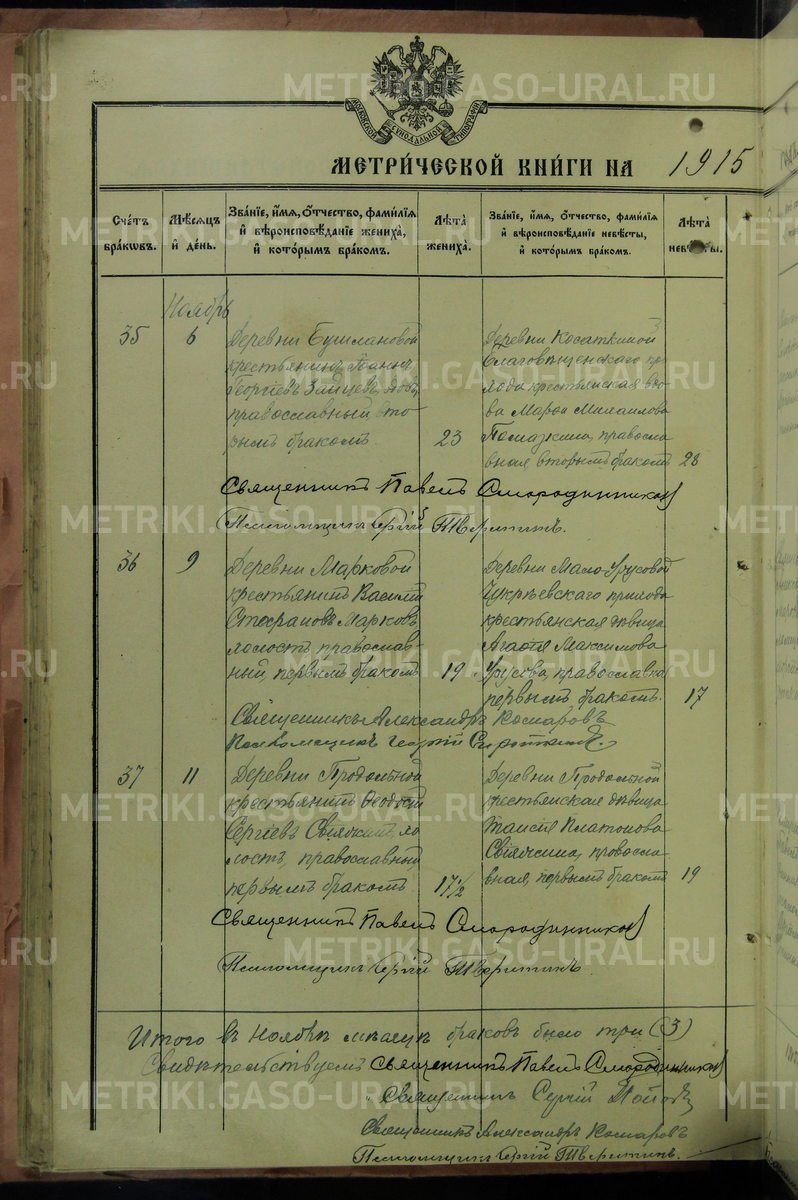 МОСКОВСКОЙ СѴНОДАЛЬНОЙ ТИПОГРАФІИ
МЕТРИ́ЧЕСКОЙ КНИ́ГИ НА 1915
Сче́тъ бра́кѡвъ.
Мѣ́сѧцъ и҆ де́нь.
Зва́нїе, и҆́мѧ, ѻ҆́тчество, фами́лїѧ и҆ вѣроисповѣ́данїе жениха̀, и҆ кото́рымъ бра́комъ.
Лѣ́та жениха̀.
Зва́нїе, и҆́мѧ, ѻ҆́тчество, фами́лїѧ и҆ вѣроисповѣ́данїе невѣ́сты, и҆ кото́рымъ бра́комъ.
Лѣ́та невѣ́сты.
Ноябрь
35
6
Деревни Бушлановой
крестьянинъ Іоаннъ
Георгіевъ Зайцевъ, вдов,
православный вто-
рымъ бракомъ
23
Деревни Косаткиной
Благовѣщенскаго при
хода крестьянская вдо
ва Марѳа Михаилова
православ
ная вторымъ бракомъ
28
Священникъ Павелъ Смородинников
Псаломщикъ Сергій Тверитинъ.
36
9
Деревни Марковой
крестьянинъ Василій
Стефановъ Марковъ
холостъ, православ-
ный, первымъ бракомъ
19
Деревни Мало-Трусовой
прихода
крестьянская дѣвица
Агаѳія Максимова
Трусова, православная
первымъ бракомъ.
17
Священникъ Александръ Комаровъ
Псаломщикъ Георгій
37
11
Деревни Продольной
крестьянинъ Ѳеодосій
Сергіевъ хо
лостъ, православный
первымъ бракомъ
17½
Деревни Продольной
крестьянская дѣвица
Таисія Платонова
правосла
вная, первымъ бракомъ
19
Священникъ Павелъ Смородинников
Псаломщикъ Сергій Тверитинъ.
Итого въ Ноябрѣ мѣсяцѣ браковъ было три (3)
Свидѣтельствуемъ Священникъ Павелъ Смородинников
Священникъ Сергій Поповъ
Священникъ Александръ Комаровъ
Псаломщикъ Сергій Тверитинъ.
METRIKI.GASO-URAL.RU